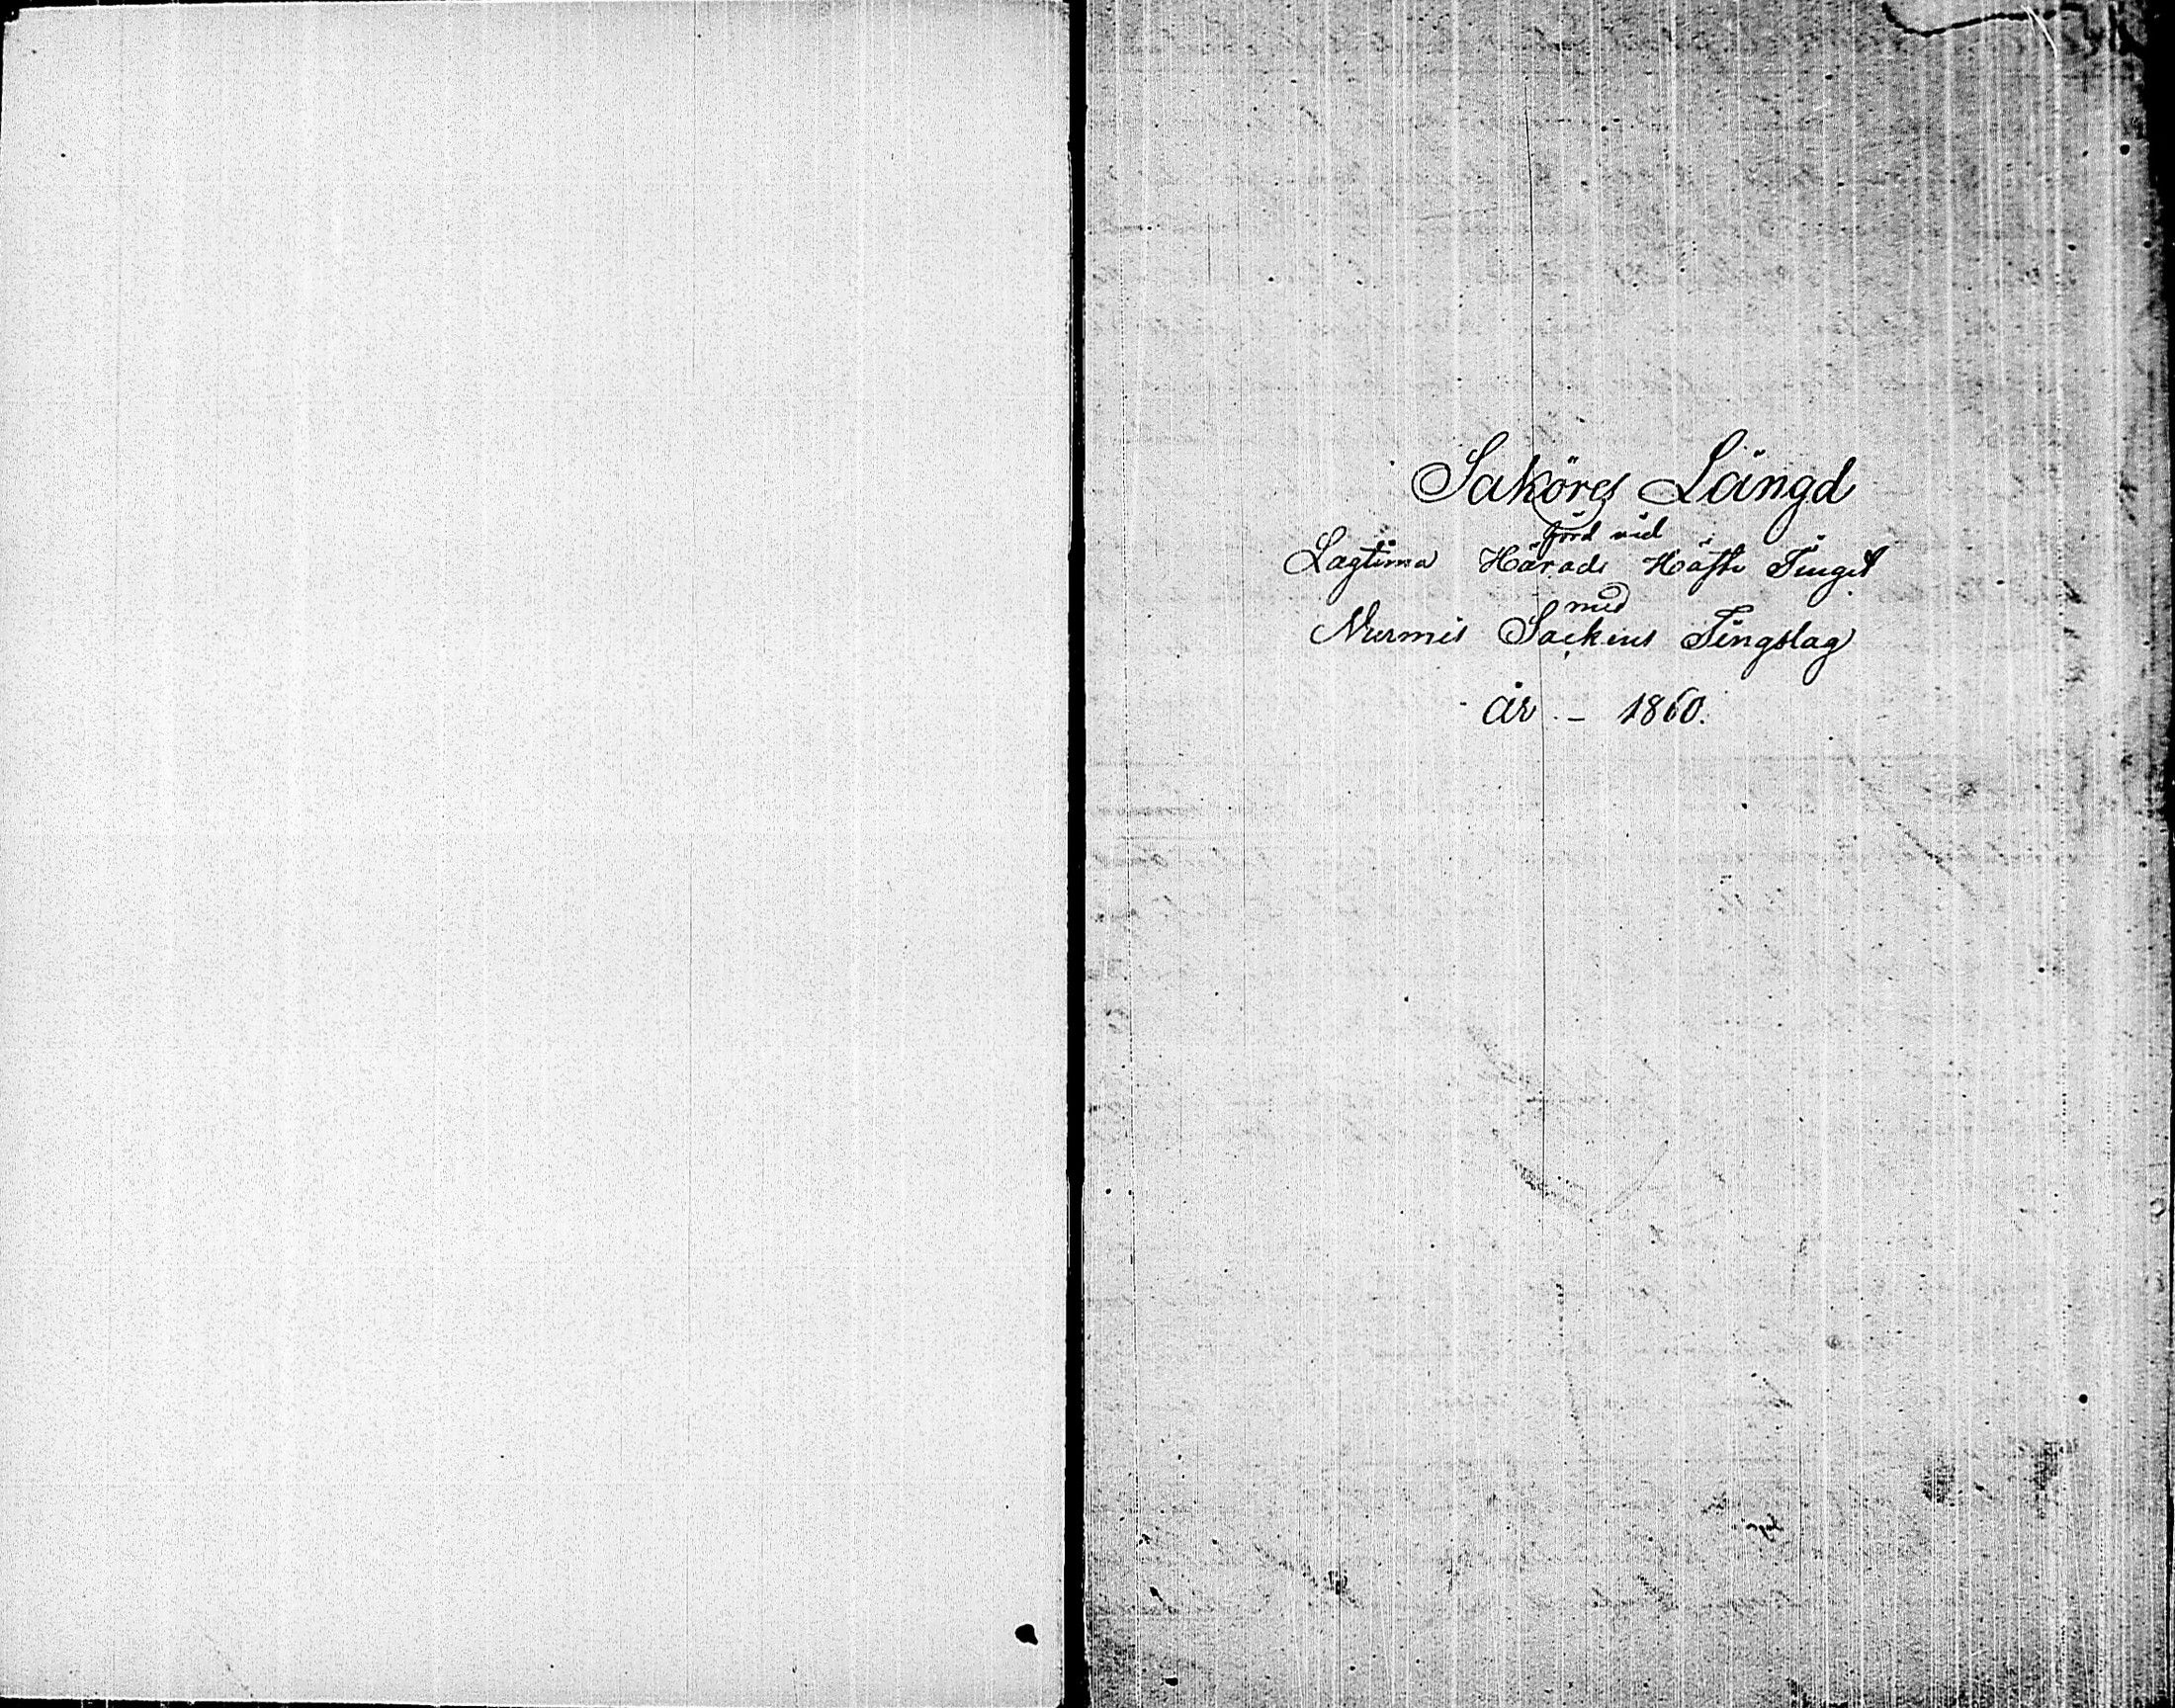 Saköres Längd
förd vid
Lagtima Härads Höste Tinget
med
Nurmis Sockens Tingslag
år - 1860.